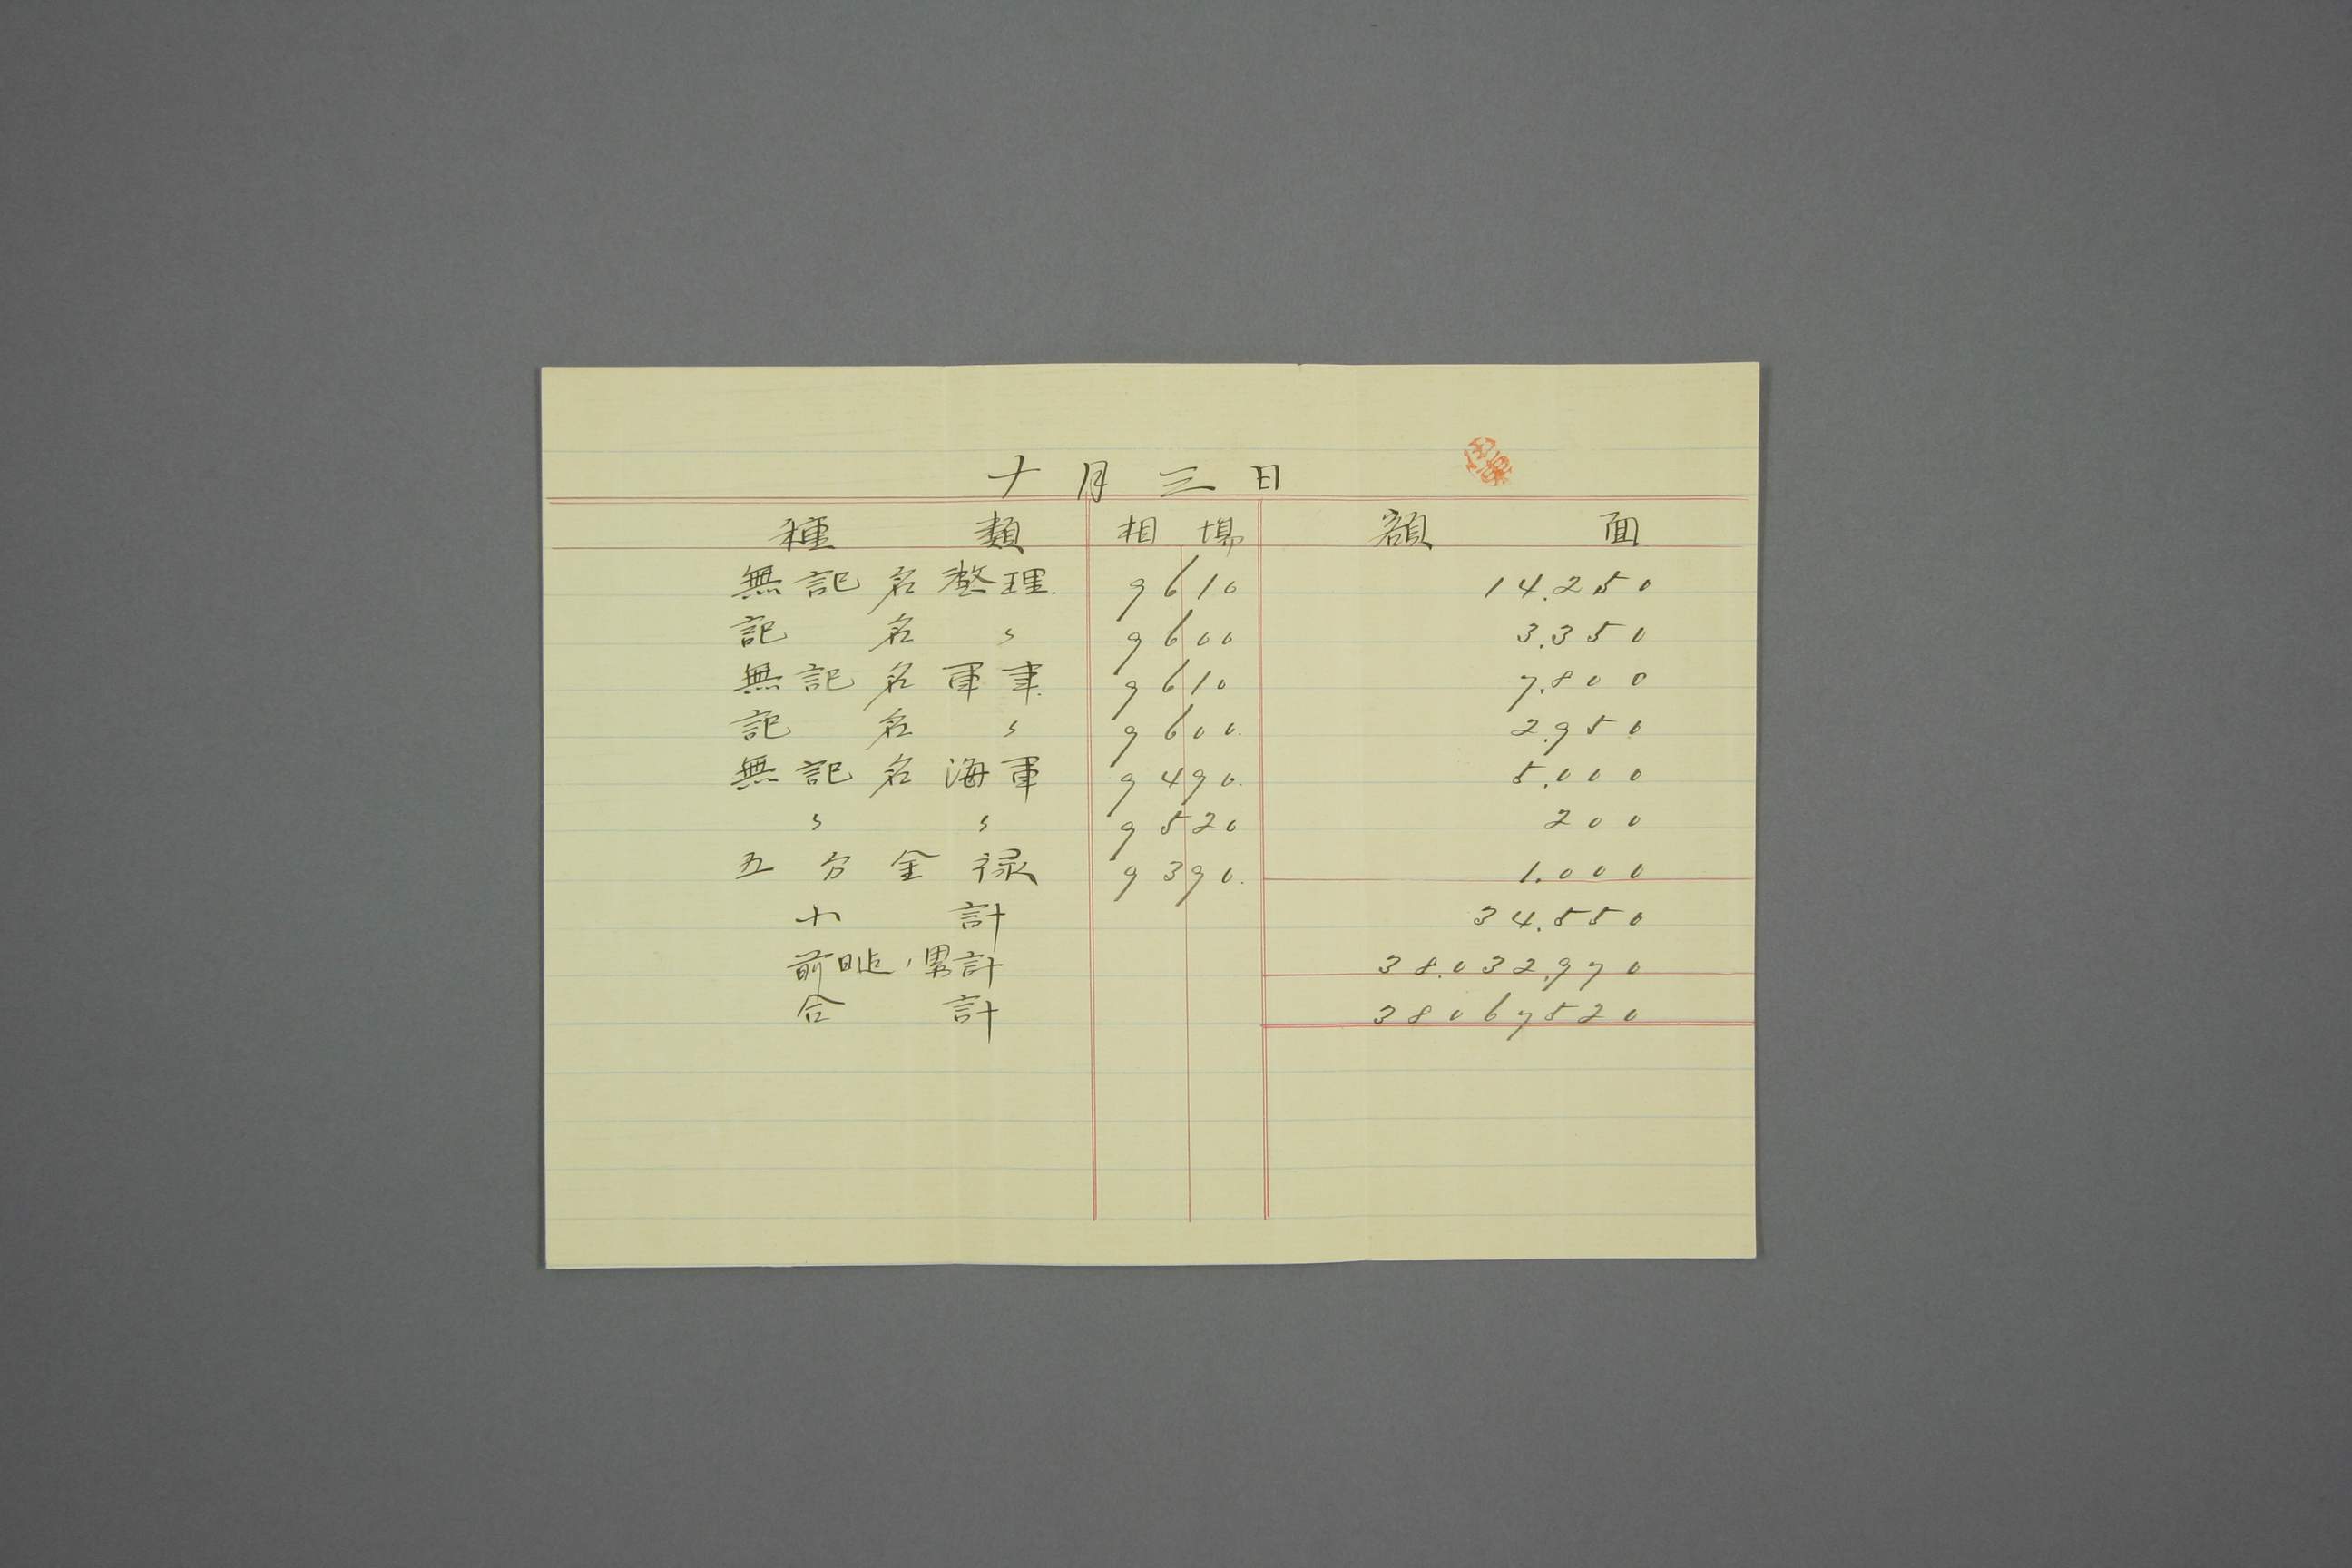 十月三日
種類 相場 額面
無記名整理. 9610 14.250
記名〃 9600 3.350
無記名軍事. 9610 7.800
記名〃 9600. 2.950
無記名海軍 9490. 5.000
〃〃 9520 200
五分金禄 9390. 1.000
小計 34.550
前日迄ノ累計 38.032.970
合計 38067520